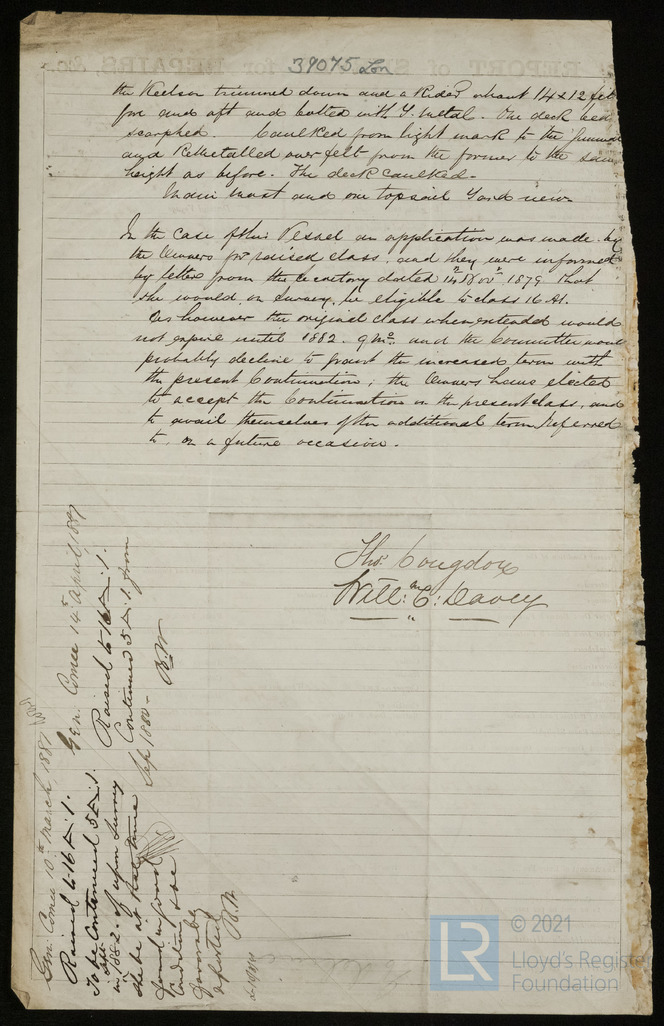 39075 Lon
the Keelson trimmed down and a Rider about 14x12 felt
fore and aft and bolted with Y. metal. One deck beam
scarphed. Caulked from light mark to the
and Remetalled over felt from the former to the same
height as before. The deck caulked.
Main mast and one topsail Yard new
In the case of this Vessel an application was made by
the Owners for raised class, and they were informed
by letter from the Secretary dated 14th Novr 1879 that
she would on Survey, be eligible to class 16 A1.
As however the original class when extended would
not expire until 1882. 9 mo. and the Committee would
probably decline to grant the increased term with
the present Continuation; the Owners have elected
to accept the Continuation in the present class, and
to avail themselves of the additional term referred
to, on a future occasion.
Thos. Congdon
Willm. C. Davey
Gen. Comee 14th April, 1881
Raised to 16 A.1.
Continued 5 A.1. from
Sep 1880 -
B.W
Gen. Comee 10th March, 1881
Raised to 16 A.1.
To be Continued 5 A.1.
in Sept
1882. If upon Survey
she be at that time
found in good
Condition & be
favorably
reported
B.W
© 2021
LR
Lloyd's Register
Foundation